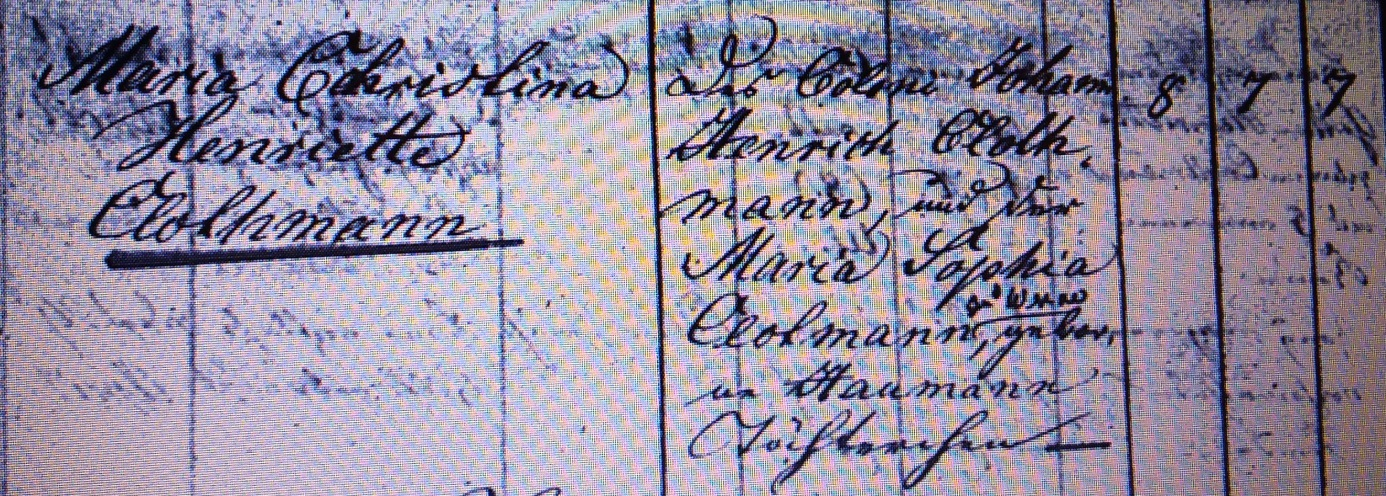 Maria Christina
Henriette
Clothmann
Des Coloni Johann
Henrich Cloth-
mann, und der
Maria Sophia
Clotmann, gebor,
ne Haumann
Töchterchen —
8 7 7